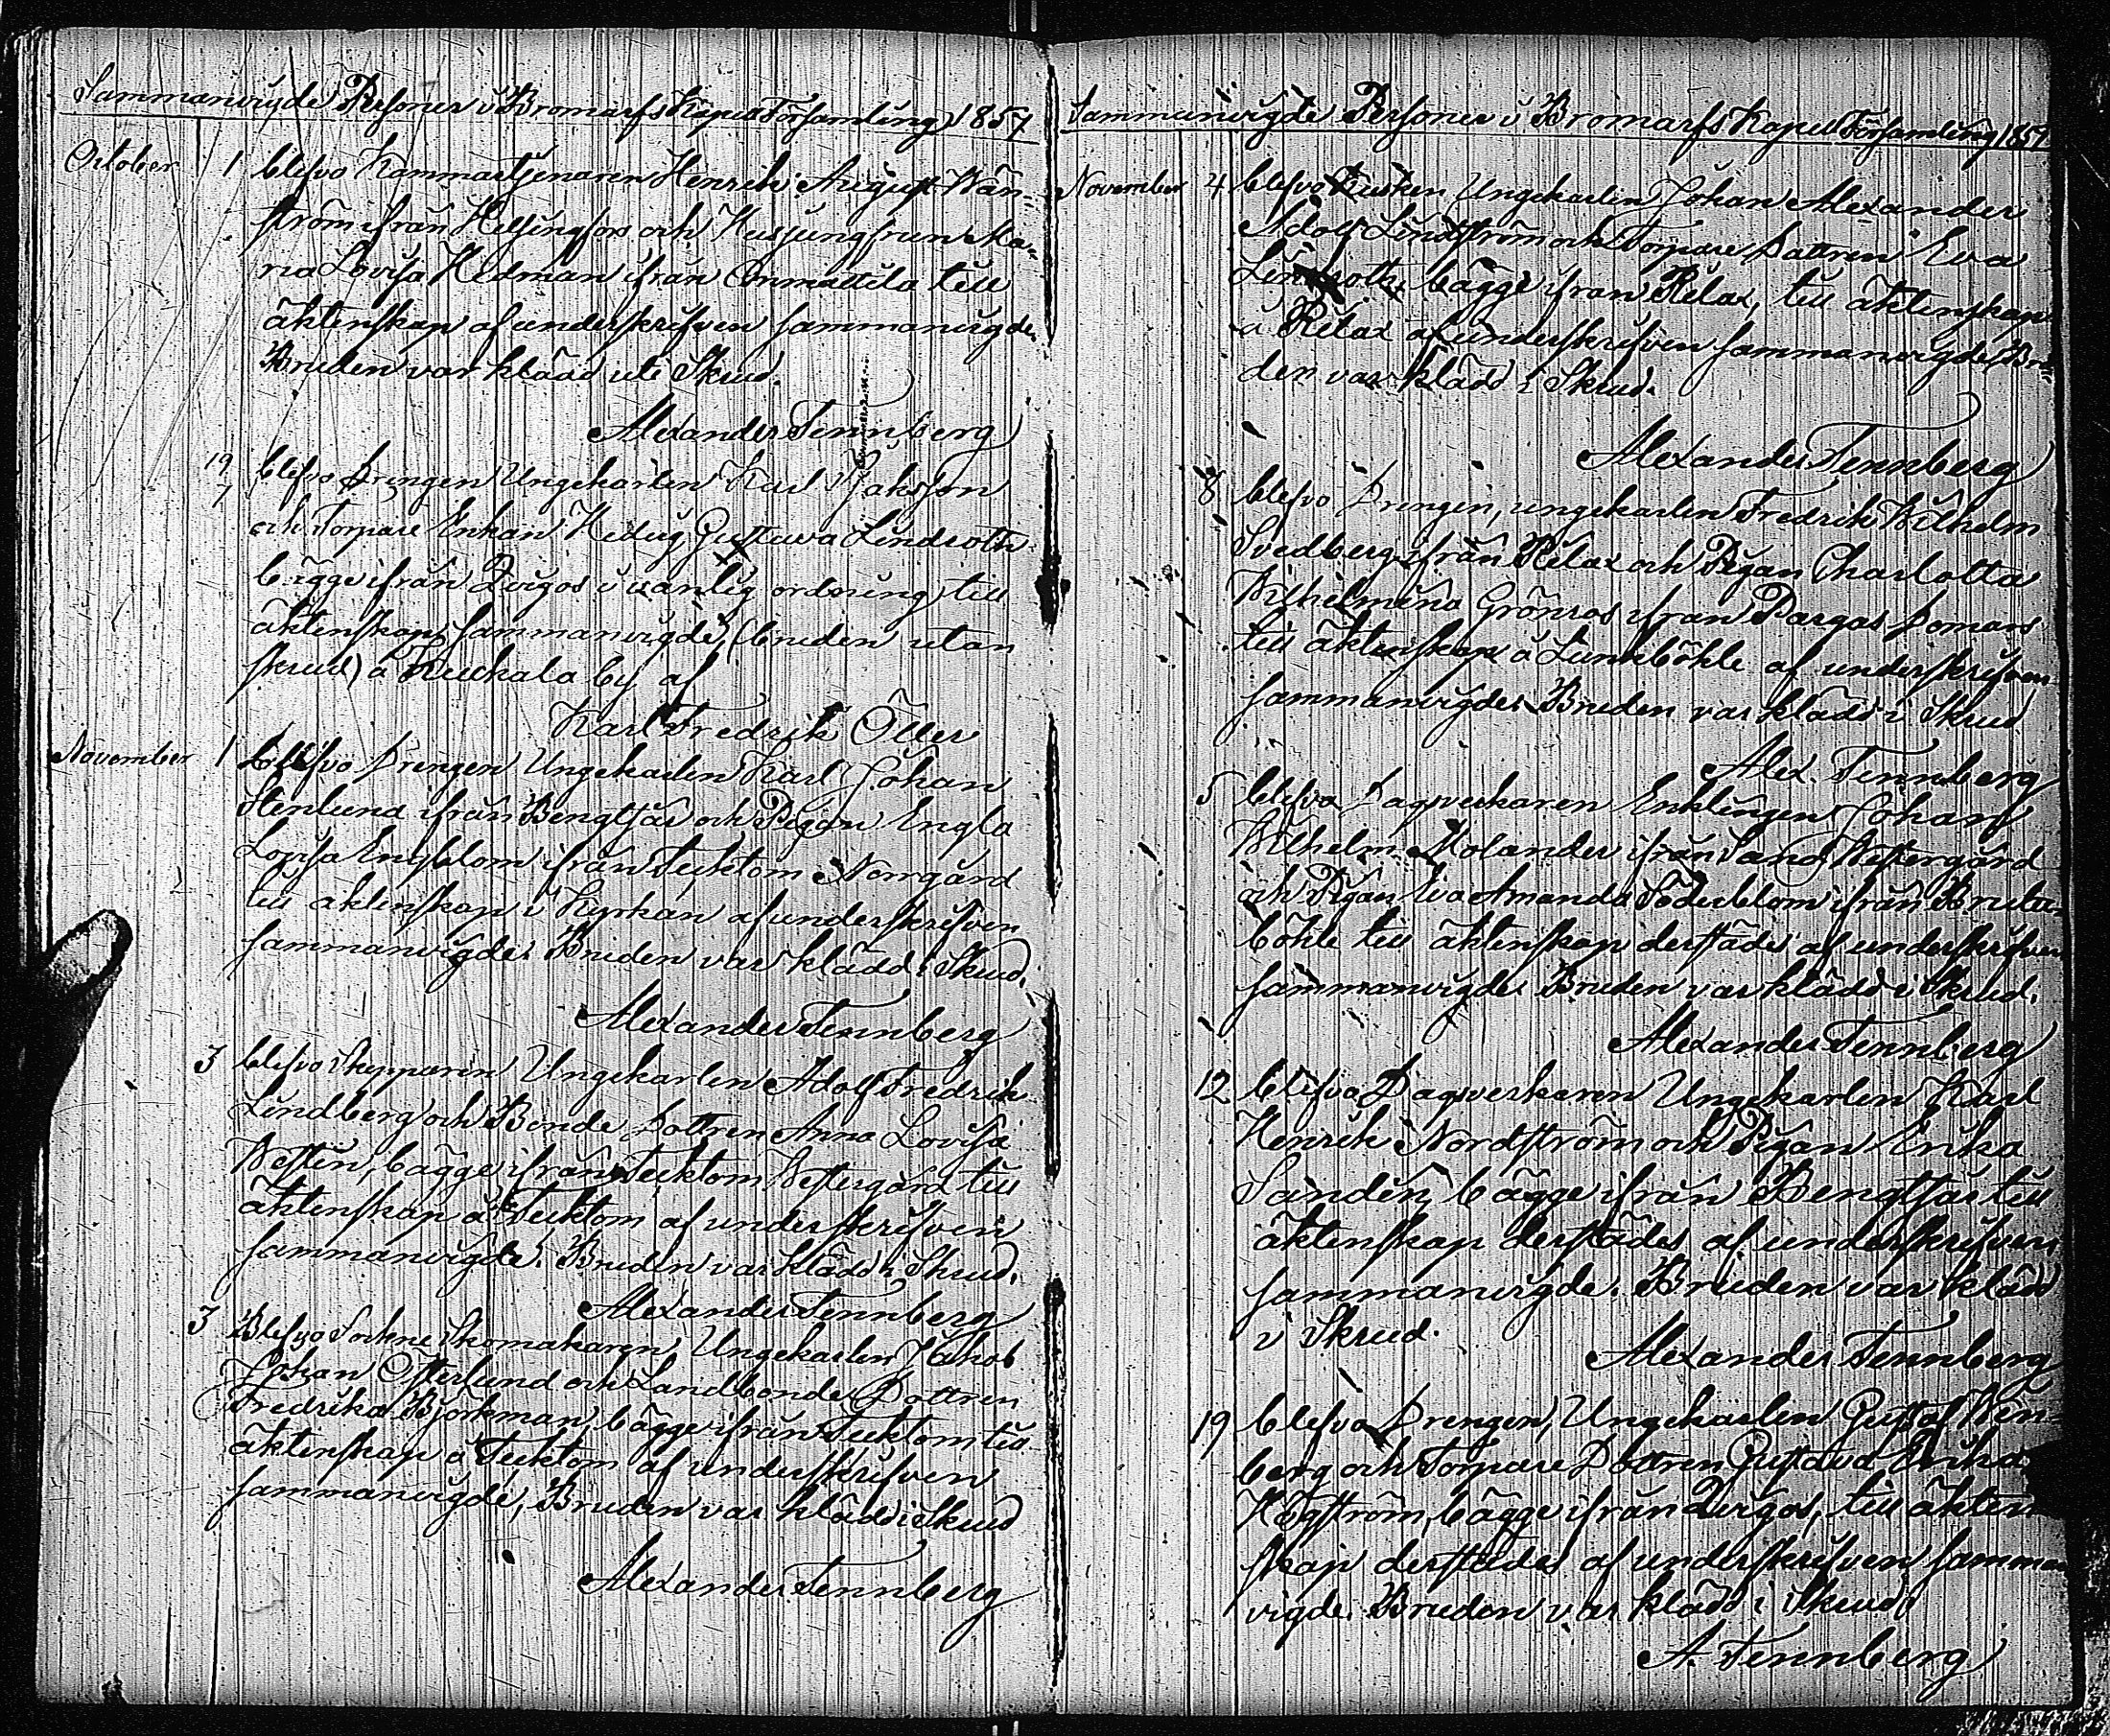 Sammanvigde Personer i Bromarfs Kapell Församling 1857
October 1 blefvo Kammartjenaren Henrik August Wän=
ström ifrån Helsingfors och Husjungfrun Ma=
ria Lovisa Hedman ifrån till
äktenskap af underskrifven sammanvigde.
Bruden var klädd ute Skrud.
Alexander Tennberg
19 blefvo Drengen Ungekarlen Karl
och Torpare Enkan Hedvig Gustava Lindroth
bägge ifrån Qvigos i vanlig ordning till
äktenskap sammanvigde, (bruden utan
skrud) å by af
Karl Fredrik Öller
November 1 blefvo Drengen Ungekarlen Karl Johan
Stenlund ifrån Bengtsår och Pigan Engla
Lovisa Engblom ifrån Tecktom Norrgård
till äktenskap i Kyrkan af underskrifven
sammanvigde. Bruden var klädd i Skrud.
Alexander Tennberg
3 blefvo Skepparen Ungekarlen Adolf Fredrik
Lindberg och Bonde Dottren Anna Lovisa
Westén, bägge ifrån Tecktom Westergård till
äktenskap å Tecktom af underskrifven
sammanvigde. Bruden var klädd i Skrud.
Alexander Tennberg
3 Blefvo Sockne Skomakaren, Ungekarlen Jakob
Johan Österlund och Landbonde Dottren
Fredrika Björkman, bägge ifrån Tecktom till
äktenskap å Tecktom af underskrifven
sammanvigde, Bruden var klädd i Skrud
Alexander Tennberg
Sammanvigde Personer i Bromarfs Kapell Församling 1857
November 4 blefvo Kusken Ungekarlen Johan Alexander
Adolf Lindström och Torpare Dottren Eva
bägge ifrån Rilax, till äktenskap
å Rilax af underskrifven sammanvigde, Bru=
den var klädd i Skrud.
Alexander Tennberg
8 blefvo Drengen, ungekarlen Fredrik Wilhelm
Svedberg ifrån Rilax och Pigan Charlotta
Wilhelmina Grönros ifrån Pargas
till äktenskap å Lunkböhle af underskrifven
sammanvigde. Bruden var klädd i Skrud
Alex. Tennberg
5 blefvo Dagsverkaren Enklingen Johan
Wilhelm Molander ifrån Sand Westergård
och Pigan Eva Amanda Söderblom ifrån
böhle till äktenskap derstädes af underskrifven
sammanvigde. Bruden var klädd i Skrud.
Alexander Tennberg
12 blefvo Dagsverkaren Ungekarlen Karl
Henrik Nordström och Pigan Erika
Sandén, bägge ifrån Bengtsår till
äktenskap derstädes af underskrifven
sammanvigde. Bruden var klädd
i Skrud.
Alexander Tennberg
19 blefvo Drengen, Ungekarlen Gustaf Wen-
berg och Torpare Dottren Gustava Erika
Högström, bägge ifrån Qvigos, till äkten
skap derstädes af underskrifven samman
vigde. Bruden var klädd i Skrud
A. Tennberg